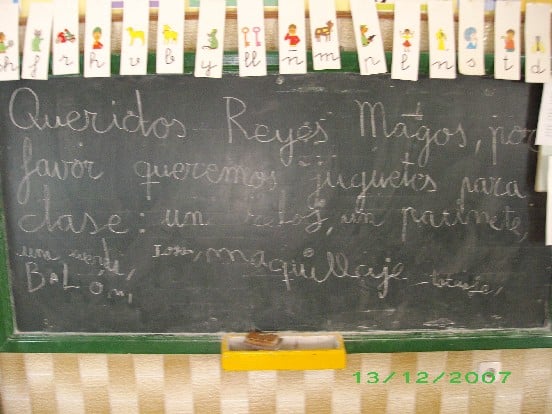 h f r h v b y ll ñ m p l n s t d
Queridos Reyes Magos, por
favor queremos juguetes para
clase: un reloj, un patinete,
un
maquillaje
BALÓN,
13/12/2007